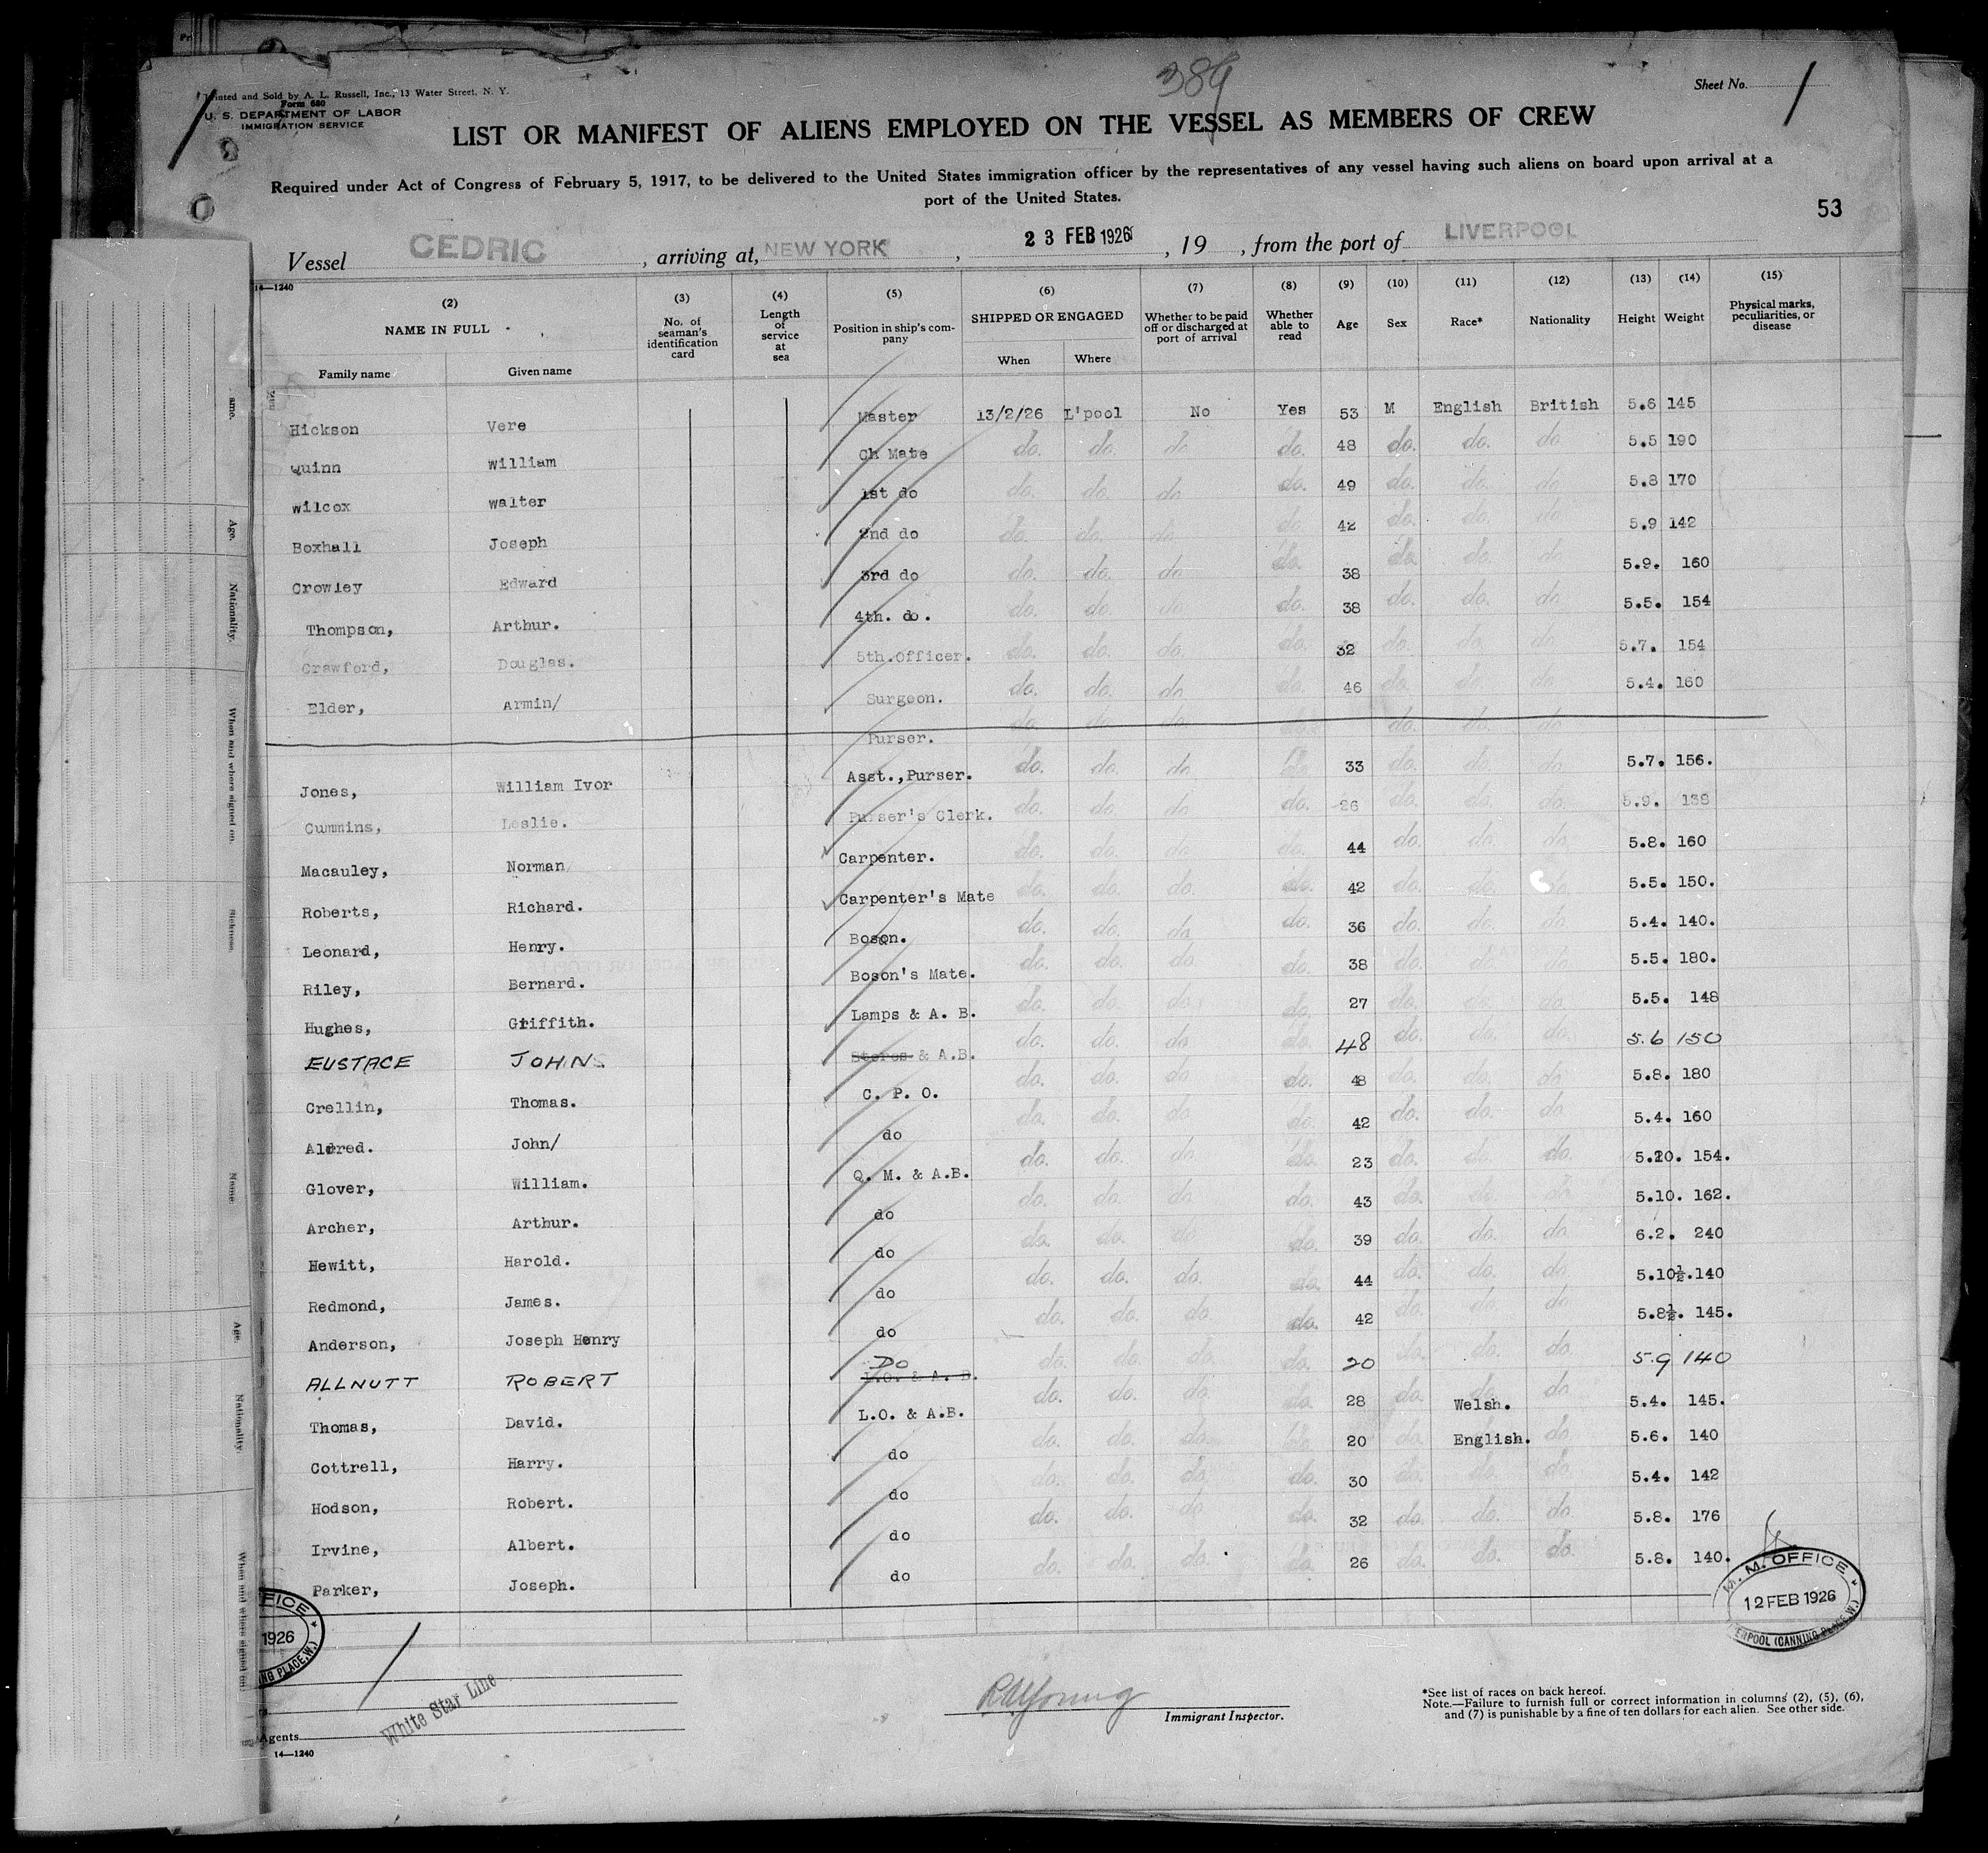 389
Sheet No. 1
Printed and Sold by A. L. Russell, Inc., 13 Water Street, N. Y.
Form 680
U. S. DEPARTMENT OF LABOR
IMMIGRATION SERVICE
LIST OR MANIFEST OF ALIENS EMPLOYED ON THE VESSEL AS MEMBERS OF CREW
Required under Act of Congress of February 5, 1917, to be delivered to the United States immigration officer by the representatives of any vessel having such aliens on board upon arrival at a
port of the United States.
53
Vessel CEDRIC, arriving at, NEW YORK, 23 FEB 1926, 19 , from the port of LIVERPOOL
14—1240
(2) NAME IN FULL Family name Given name (3) No. of seaman's identification card (4) Length of service at sea (5) Position in ship's company (6) SHIPPED OR ENGAGED When Where (7) Whether to be paid off or discharged at port of arrival (8) Whether able to read (9) Age (10) Sex (11) Race* (12) Nationality (13) Height (14) Weight (15) Physical marks, peculiarities, or disease
Hickson Vere Master 13/2/26 L'pool No Yes 53 M English British 5.6 145
Quinn William Ch Mate do. do. do do. 48 do. do. do 5.5 190
Wilcox Walter 1st do do. do. do do. 49 do. do. do 5.8 170
Boxhall Joseph 2nd do do. do. do do. 42 do. do. do 5.9 142
Crowley Edward 3rd do do. do. do do. 38 do. do. do 5.9. 160
Thompson, Arthur. 4th. do. do. do. do do. 38 do. do. do 5.5. 154
Crawford, Douglas. 5th.Officer. do. do. do do. 32 do. do. do 5.7. 154
Elder, Armin/ Surgeon. do. do. do do. 46 do. do. do 5.4. 160
Purser. do. do. do do. do. do. do
Jones, William Ivor Asst.,Purser. do. do. do do. 33 do. do. do 5.7. 156.
Cummins, Leslie. Purser's Clerk. do. do. do do. 26 do. do. do. 5.9. 138
Macauley, Norman Carpenter. do. do. do. do. 44 do. do. do 5.8. 160
Roberts, Richard. Carpenter's Mate do. do. do. do. 42 do. do. do. 5.5. 150.
Leonard, Henry. Boson. do. do. do do. 36 do. do. do 5.4. 140.
Riley, Bernard. Boson's Mate. do. do. do do. 38 do. do. do 5.5. 180.
Hughes, Griffith. Lamps & A. B. do. do. do. do. 27 do. do. do. 5.5. 148
EUSTACE JOHN Stores & A.B. do. do. do do. 48 do. do. do. 5.6 150
Crellin, Thomas. C. P. O. do. do. do do. 48 do. do. do 5.8. 180
Aldred. John/ do do. do. do do. 42 do. do. do 5.4. 160
Glover, William. Q. M. & A.B. do. do. do do. 23 do. do. do. 5.10. 154.
Archer, Arthur. do do. do. do do. 43 do. do. do 5.10. 162.
Hewitt, Harold. do do. do. do. do. 39 do. do. do 6.2. 240
Redmond, James. do do. do. do. do. 44 do. do. do 5.10½.140
Anderson, Joseph Henry do do. do. do. do. 42 do. do. do 5.8½. 145.
ALLNUTT ROBERT Do L.O. & A. B. do. do. do. do. 20 do. do. do. 5.9 140
Thomas, David. L.O. & A.B. do. do. do. do. 28 do. Welsh. do 5.4. 145.
Cottrell, Harry. do do. do. do. do. 20 do. English. do. 5.6. 140
Hodson, Robert. do do. do. do. do. 30 do. do. do. 5.4. 142
Irvine, Albert. do do. do. do. do. 32 do. do. do. 5.8. 176
Parker, Joseph. do do. do. do. do. 26 do. do. do. 5.8. 140.
M. M. OFFICE
12 FEB 1926
LIVERPOOL (CANNING PLACE, W.)
FICE
1926
NG PLACE, W.)
Agents White Star Line
14—1240
Immigrant Inspector.
*See list of races on back hereof.
Note.—Failure to furnish full or correct information in columns (2), (5), (6),
and (7) is punishable by a fine of ten dollars for each alien. See other side.
ame.
Age.
Nationality.
When and where signed on.
Sickness
Name.
Age.
Nationality.
When and where signed on.